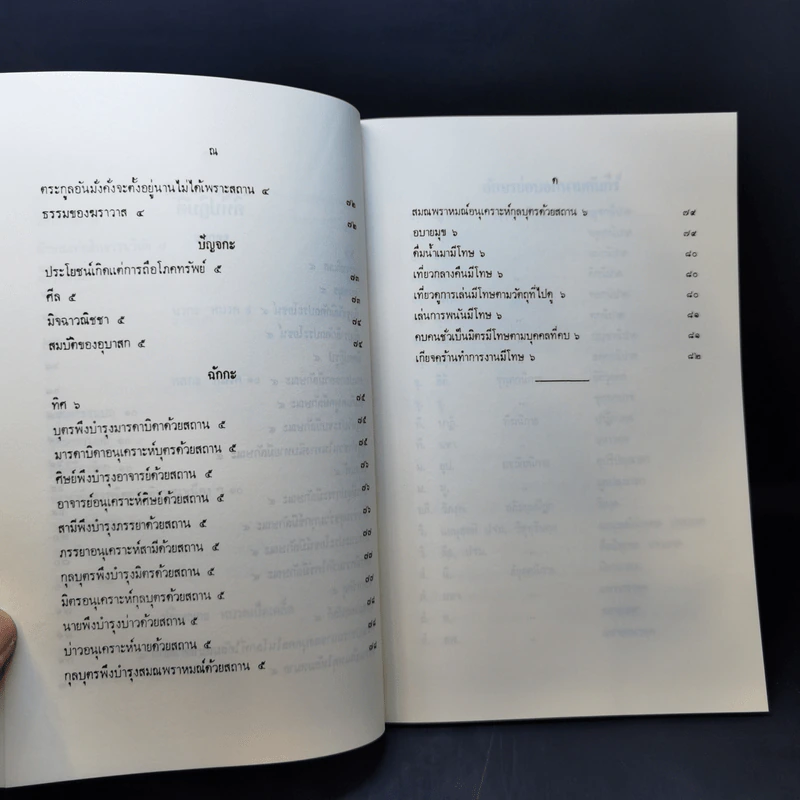 ณ
ตระกูลอันมั่งคั่งจะตั้งอยู่นานไม่ได้เพราะสถาน ๔ ๗๒
ธรรมของฆราวาส ๔ ๗๒
ปัญจกะ
ประโยชน์เกิดแต่การถือโภคทรัพย์ ๕ ๗๓
ศีล ๕ ๗๓
มิจฉาวณิชชา ๕ ๗๔
สมบัติของอุบาสก ๕ ๗๔
ฉักกะ
ทิศ ๖ ๗๕
บุตรพึงบำรุงมารดาบิดาด้วยสถาน ๕ ๗๕
มารดาบิดาอนุเคราะห์บุตรด้วยสถาน ๕ ๗๕
ศิษย์พึงบำรุงอาจารย์ด้วยสถาน ๕ ๗๖
อาจารย์อนุเคราะห์ศิษย์ด้วยสถาน ๕ ๗๖
สามีพึงบำรุงภรรยาด้วยสถาน ๕ ๗๖
ภรรยาอนุเคราะห์สามีด้วยสถาน ๕ ๗๗
กุลบุตรพึงบำรุงมิตรด้วยสถาน ๕ ๗๗
มิตรอนุเคราะห์กุลบุตรด้วยสถาน ๕ ๗๘
นายพึงบำรุงบ่าวด้วยสถาน ๕ ๗๘
บ่าวอนุเคราะห์นายด้วยสถาน ๕ ๗๘
กุลบุตรพึงบำรุงสมณพราหมณ์ด้วยสถาน ๕
ด
สมณพราหมณ์อนุเคราะห์กุลบุตรด้วยสถาน ๖ ๗๙
อบายมุข ๖ ๗๙
ดื่มน้ำเมามีโทษ ๖ ๘๐
เที่ยวกลางคืนมีโทษ ๖ ๘๐
เที่ยวดูการเล่นมีโทษตามวัตถุที่ไปดู ๖ ๘๐
เล่นการพนันมีโทษ ๖ ๘๑
คบคนชั่วเป็นมิตรมีโทษตามบุคคลที่คบ ๖ ๘๑
เกียจคร้านทำการงานมีโทษ ๖ ๘๒